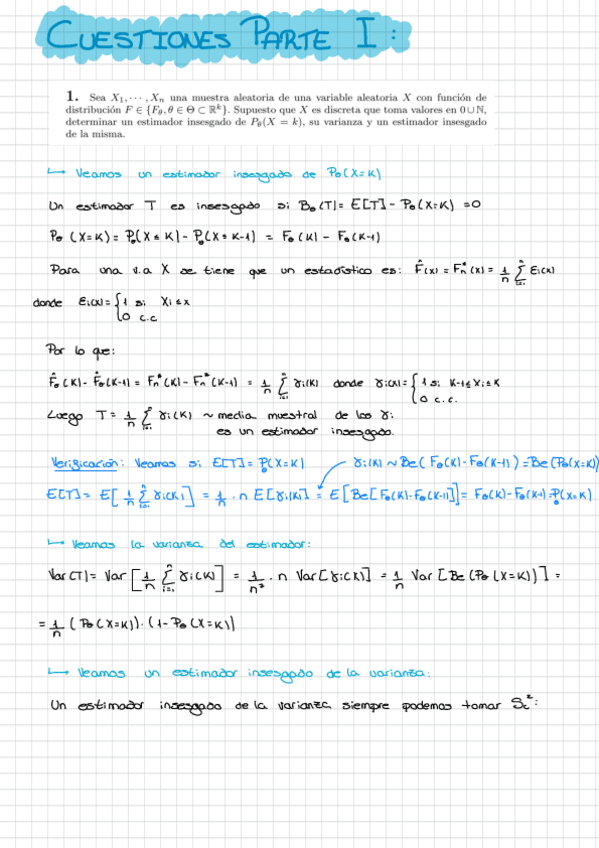 CUESTIONES PARTE I:
1. Sea X₁, ⋯ , Xₙ una muestra aleatoria de una variable aleatoria X con función de
distribución F ∈ {F_θ, θ ∈ Θ ⊂ ℝᵏ}. Supuesto que X es discreta que toma valores en 0 ∪ ℕ,
determinar un estimador insesgado de P_θ(X = k), su varianza y un estimador insesgado
de la misma.
↳ Veamos un estimador insesgado de P_θ(X=K)
Un estimador T es insesgado si B_θ(T) = E[T] - P_θ(X=K) = 0
P_θ(X=K) = P_θ(X≤K) - P_θ(X≤K-1) = F_θ(K) - F_θ(K-1)
Para una v.a X se tiene que un estadístico es: F̂(x) = Fₙ*(x) = 1/n Σⁿᵢ₌₁ εᵢ(x)
donde εᵢ(x) = { 1 si Xᵢ ≤ x
0 c.c
Por lo que:
F̂_θ(K) - F̂_θ(K-1) = Fₙ*(K) - Fₙ*(K-1) = 1/n Σⁿᵢ₌₁ γᵢ(K) donde γᵢ(x) = { 1 si K-1≤Xᵢ≤K
0 c.c.
Luego T = 1/n Σⁿᵢ₌₁ γᵢ(K) ~ media muestral de los γᵢ
es un estimador insesgado.
Verificación: Veamos si E[T] = P_θ(X=K) γᵢ(K) ~ Be(F_θ(K) - F_θ(K-1)) = Be(P_θ(X=K))
E[T] = E[1/n Σⁿᵢ₌₁ γᵢ(K)] = 1/n · n E[γᵢ(K)] = E[Be[F_θ(K) - F_θ(K-1)]] = F_θ(K) - F_θ(K-1) = P_θ(X=K)
↳ Veamos la varianza del estimador:
Var(T) = Var[1/n Σⁿᵢ₌₁ γᵢ(K)] = 1/n² · n Var[γᵢ(K)] = 1/n Var[Be(P_θ(X=K))] =
= 1/n (P_θ(X=K)) · (1 - P_θ(X=K))
↳ Veamos un estimador insesgado de la varianza:
Un estimador insesgado de la varianza siempre podemos tomar S_c²: